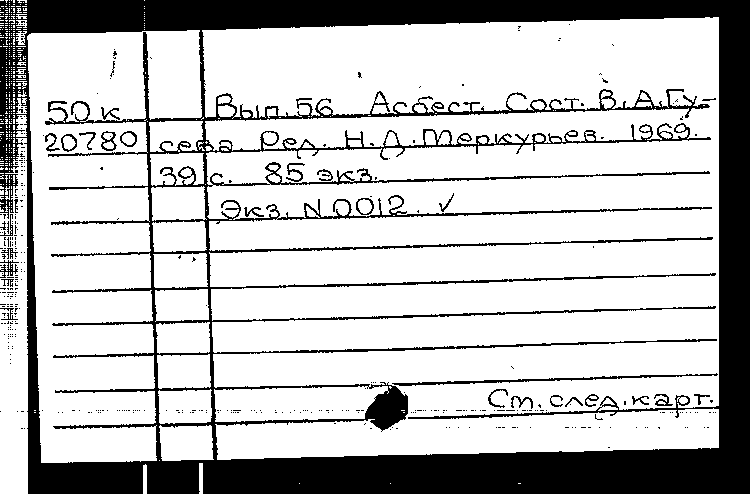 50к Вып. 56 Асбест. Сост. В.А.Гу-
20780 сева. Ред. Н.Д.Меркурьев. 1969.
39 с. 85 экз.
Экз. N 0012. ✓
См. след. карт.